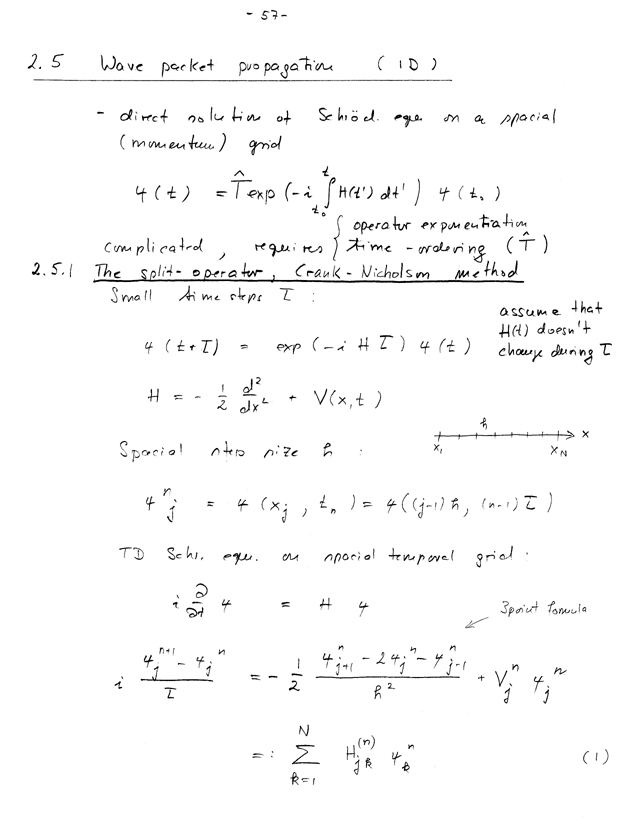 - 57 -
2.5 Wave packet propagation (1D)
- direct solution of Schröd. eqn on a spacial
(momentum) grid
ψ(t) = T̂ exp (-i ∫_{t₀}^{t} H(t') dt') ψ(t₀)
complicated, requires { operator exponentiation
time-ordering (T̂)
2.5.1 The split-operator, Crank-Nicholson method
Small time steps τ :
ψ(t+τ) = exp(-i H τ) ψ(t)
assume that
H(t) doesn't
change during τ
H = - 1/2 d²/dx² + V(x,t)
Spacial step size h :
h
x₁ x_N x
ψ^n_j = ψ(x_j, t_n) = ψ((j-1)h, (n-1)τ)
TD Schr. eqn. on spacial temporal grid:
i ∂/∂t ψ = H ψ
3point formula
i (ψ_j^{n+1} - ψ_j^n)/τ = - 1/2 (ψ^n_{j+1} - 2ψ_j^n - ψ^n_{j-1})/h² + V_j^n ψ_j^n
=: Σ_{k=1}^{N} H_{jk}^{(n)} ψ_k^n (1)